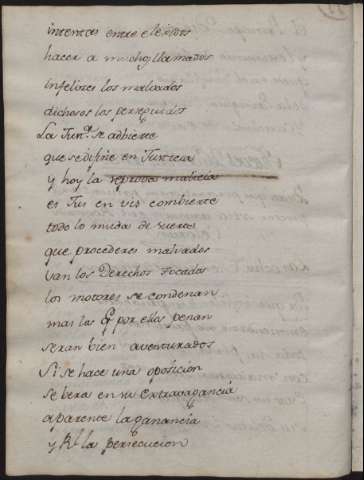 intentes entre elejidos
hacer a muchos llamados
infelices los malvados
dichosos los perseguidos
La Jun.ª se adbierte
que se difine en Justicia
y hoy la reproba malicia
es Jus en vis combierte
todo lo muda de suerte
que procederes malvados
van los Derechos focados
los motores se condenan
mas los q por ellos penan
seran bien aventurados
Si se hace una oposicion
se bera en su extravagancia
aparente la ganancia
y Rl la persecucion